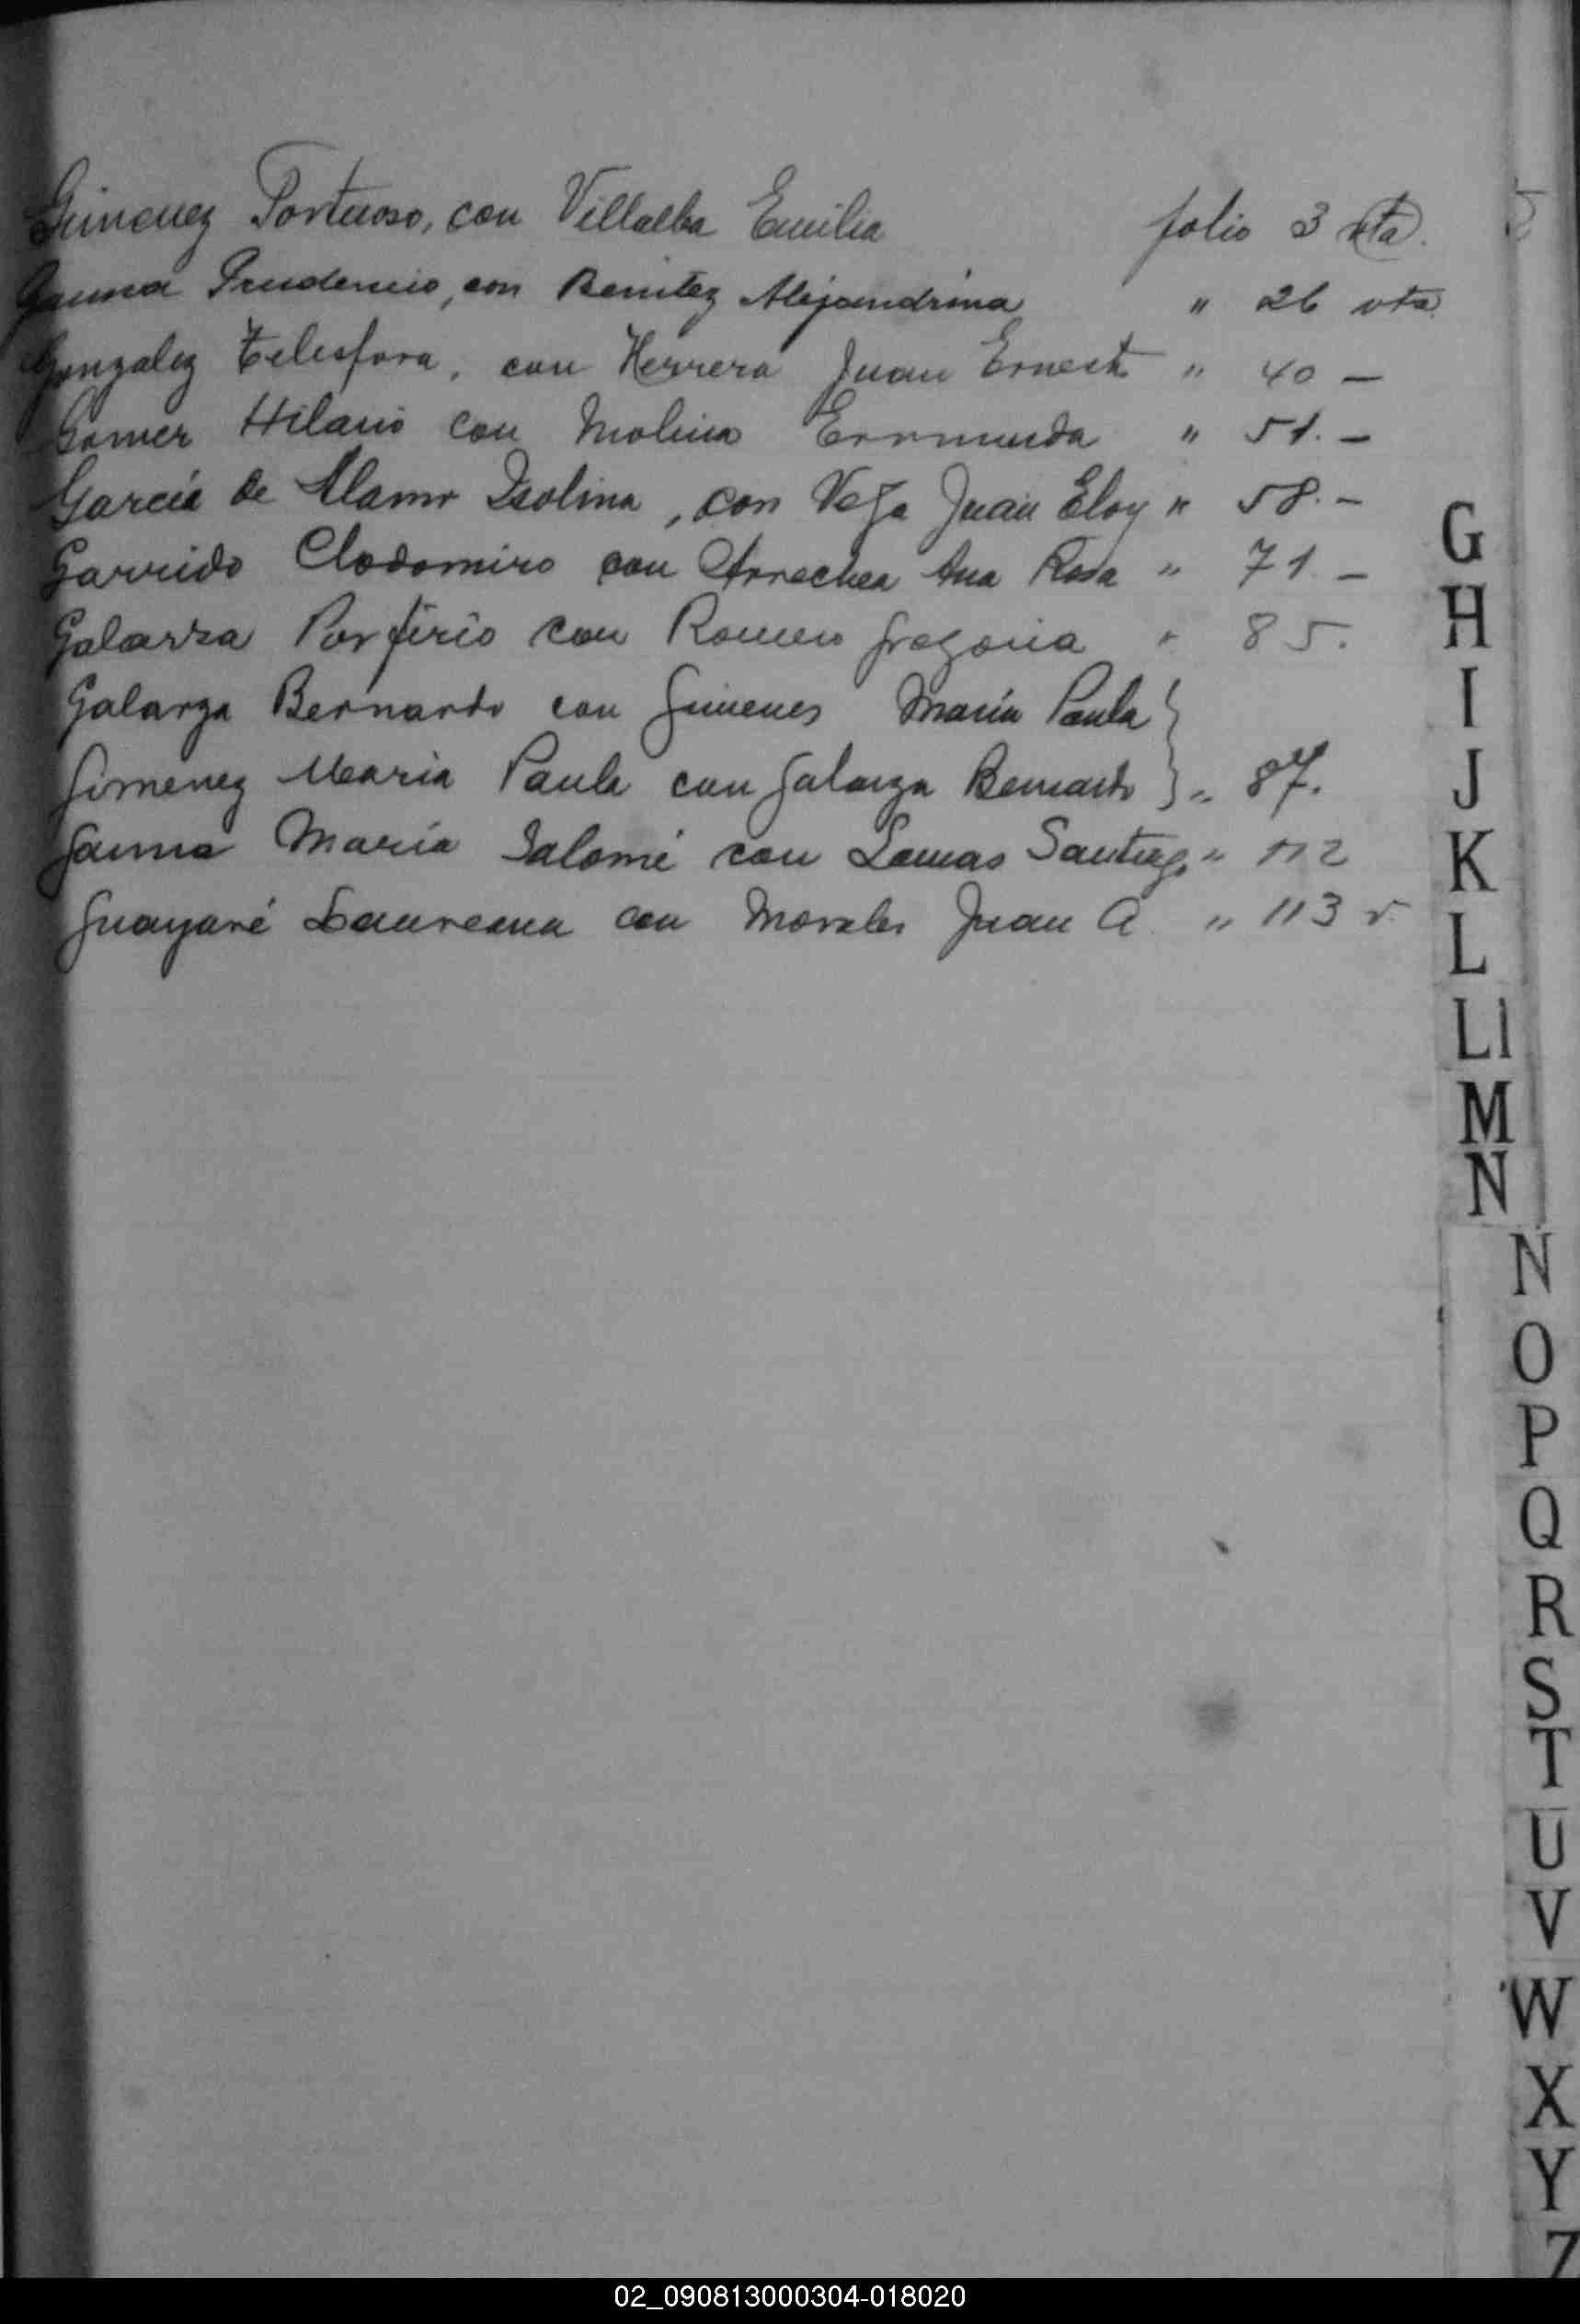 Gimenez Portuoso, con Villalba Emilia folio 3 vta.
Gauna Prudencio, con Benitez Alejandrina " 26 vta.
Gonzalez Telesfora, con Herrera Juan Ernesto " 40 —
Gomez Hilario con Molina ErMunda " 51. —
García de Alamo Isolina, con Vega Juan Eloy " 58. —
Garrido Clodomiro con Arrechea Ana Rosa " 71. —
Galarza Porfirio con Romero Gregoria " 85.
Galarza Bernardo con Gimenes María Paula }
Gimenez Maria Paula con Galarza Bernardo } " 87.
Gauna María Salomé con Lamas Santiago " 112
Guayaré Laureana con Morales Juan A. " 113 v.
G
H
I
J
K
L
Ll
M
N
N
O
P
Q
R
S
T
U
V
W
X
Y
Z
02_090813000304-018020